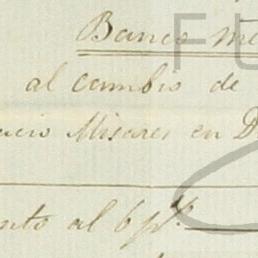 Banco me
al cambio de
acio Misares en D
nto al 6 p%